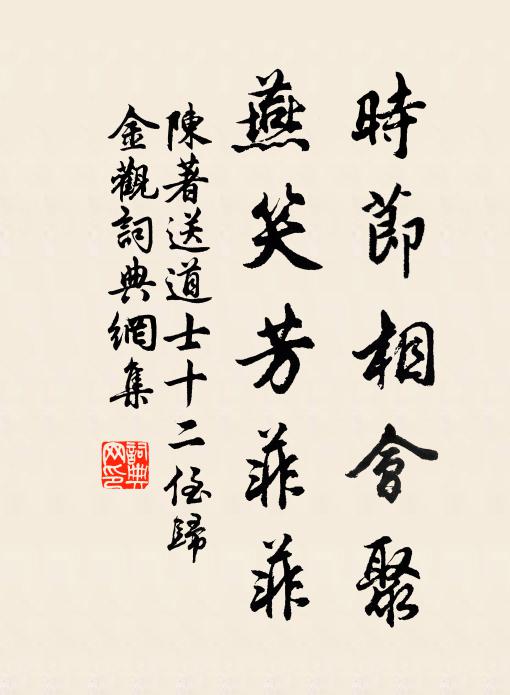 時節相會聚
燕笑芳菲菲
陳著送道士十二侄歸
金觀詞典網集
詞典網印